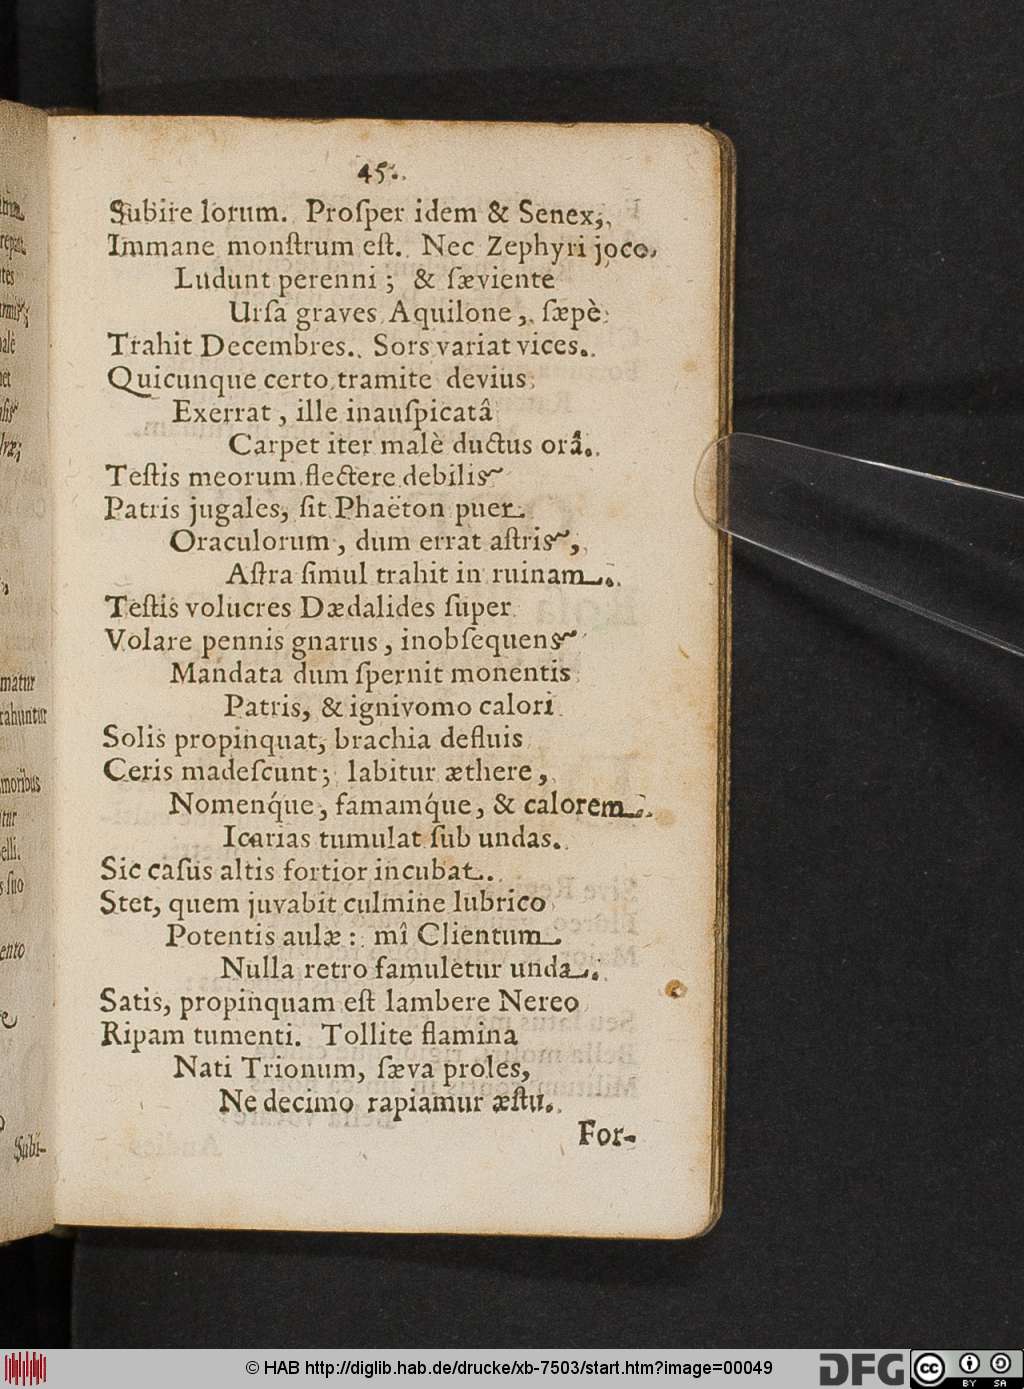 45.
Subire lorum. Proſper idem & Senex,
Immane monſtrum eſt. Nec Zephyri joco
Ludunt perenni; & ſæviente
Urſa graves Aquilone, ſæpè
Trahit Decembres. Sors variat vices.
Quicunque certo tramite devius
Exerrat, ille inauſpicatâ
Carpet iter malè ductus orâ.
Teſtis meorum flectere debilis
Patris jugales, ſit Phaëton puer
Oraculorum, dum errat aſtris,
Aſtra ſimul trahit in ruinam.
Teſtis volucres Dædalides ſuper
Volare pennis gnarus, inobſequens
Mandata dum ſpernit monentis
Patris, & ignivomo calori
Solis propinquat, brachia defluis
Ceris madeſcunt; labitur æthere,
Nomenq́ue, famamq́ue, & calorem
Icarias tumulat ſub undas.
Sic caſus altis fortior incubat.
Stet, quem juvabit culmine lubrico
Potentis aulæ: mî Clientum
Nulla retro famuletur unda.
Satis, propinquam eſt lambere Nereo
Ripam tumenti. Tollite flamina
Nati Trionum, ſæva proles,
Ne decimo rapiamur æſtu.
For-
matur
rahuntur
moribus
itur
elli.
s ſuo
ento
Subi-
© HAB http://diglib.hab.de/drucke/xb-7503/start.htm?image=00049
DFG
cc
BY SA